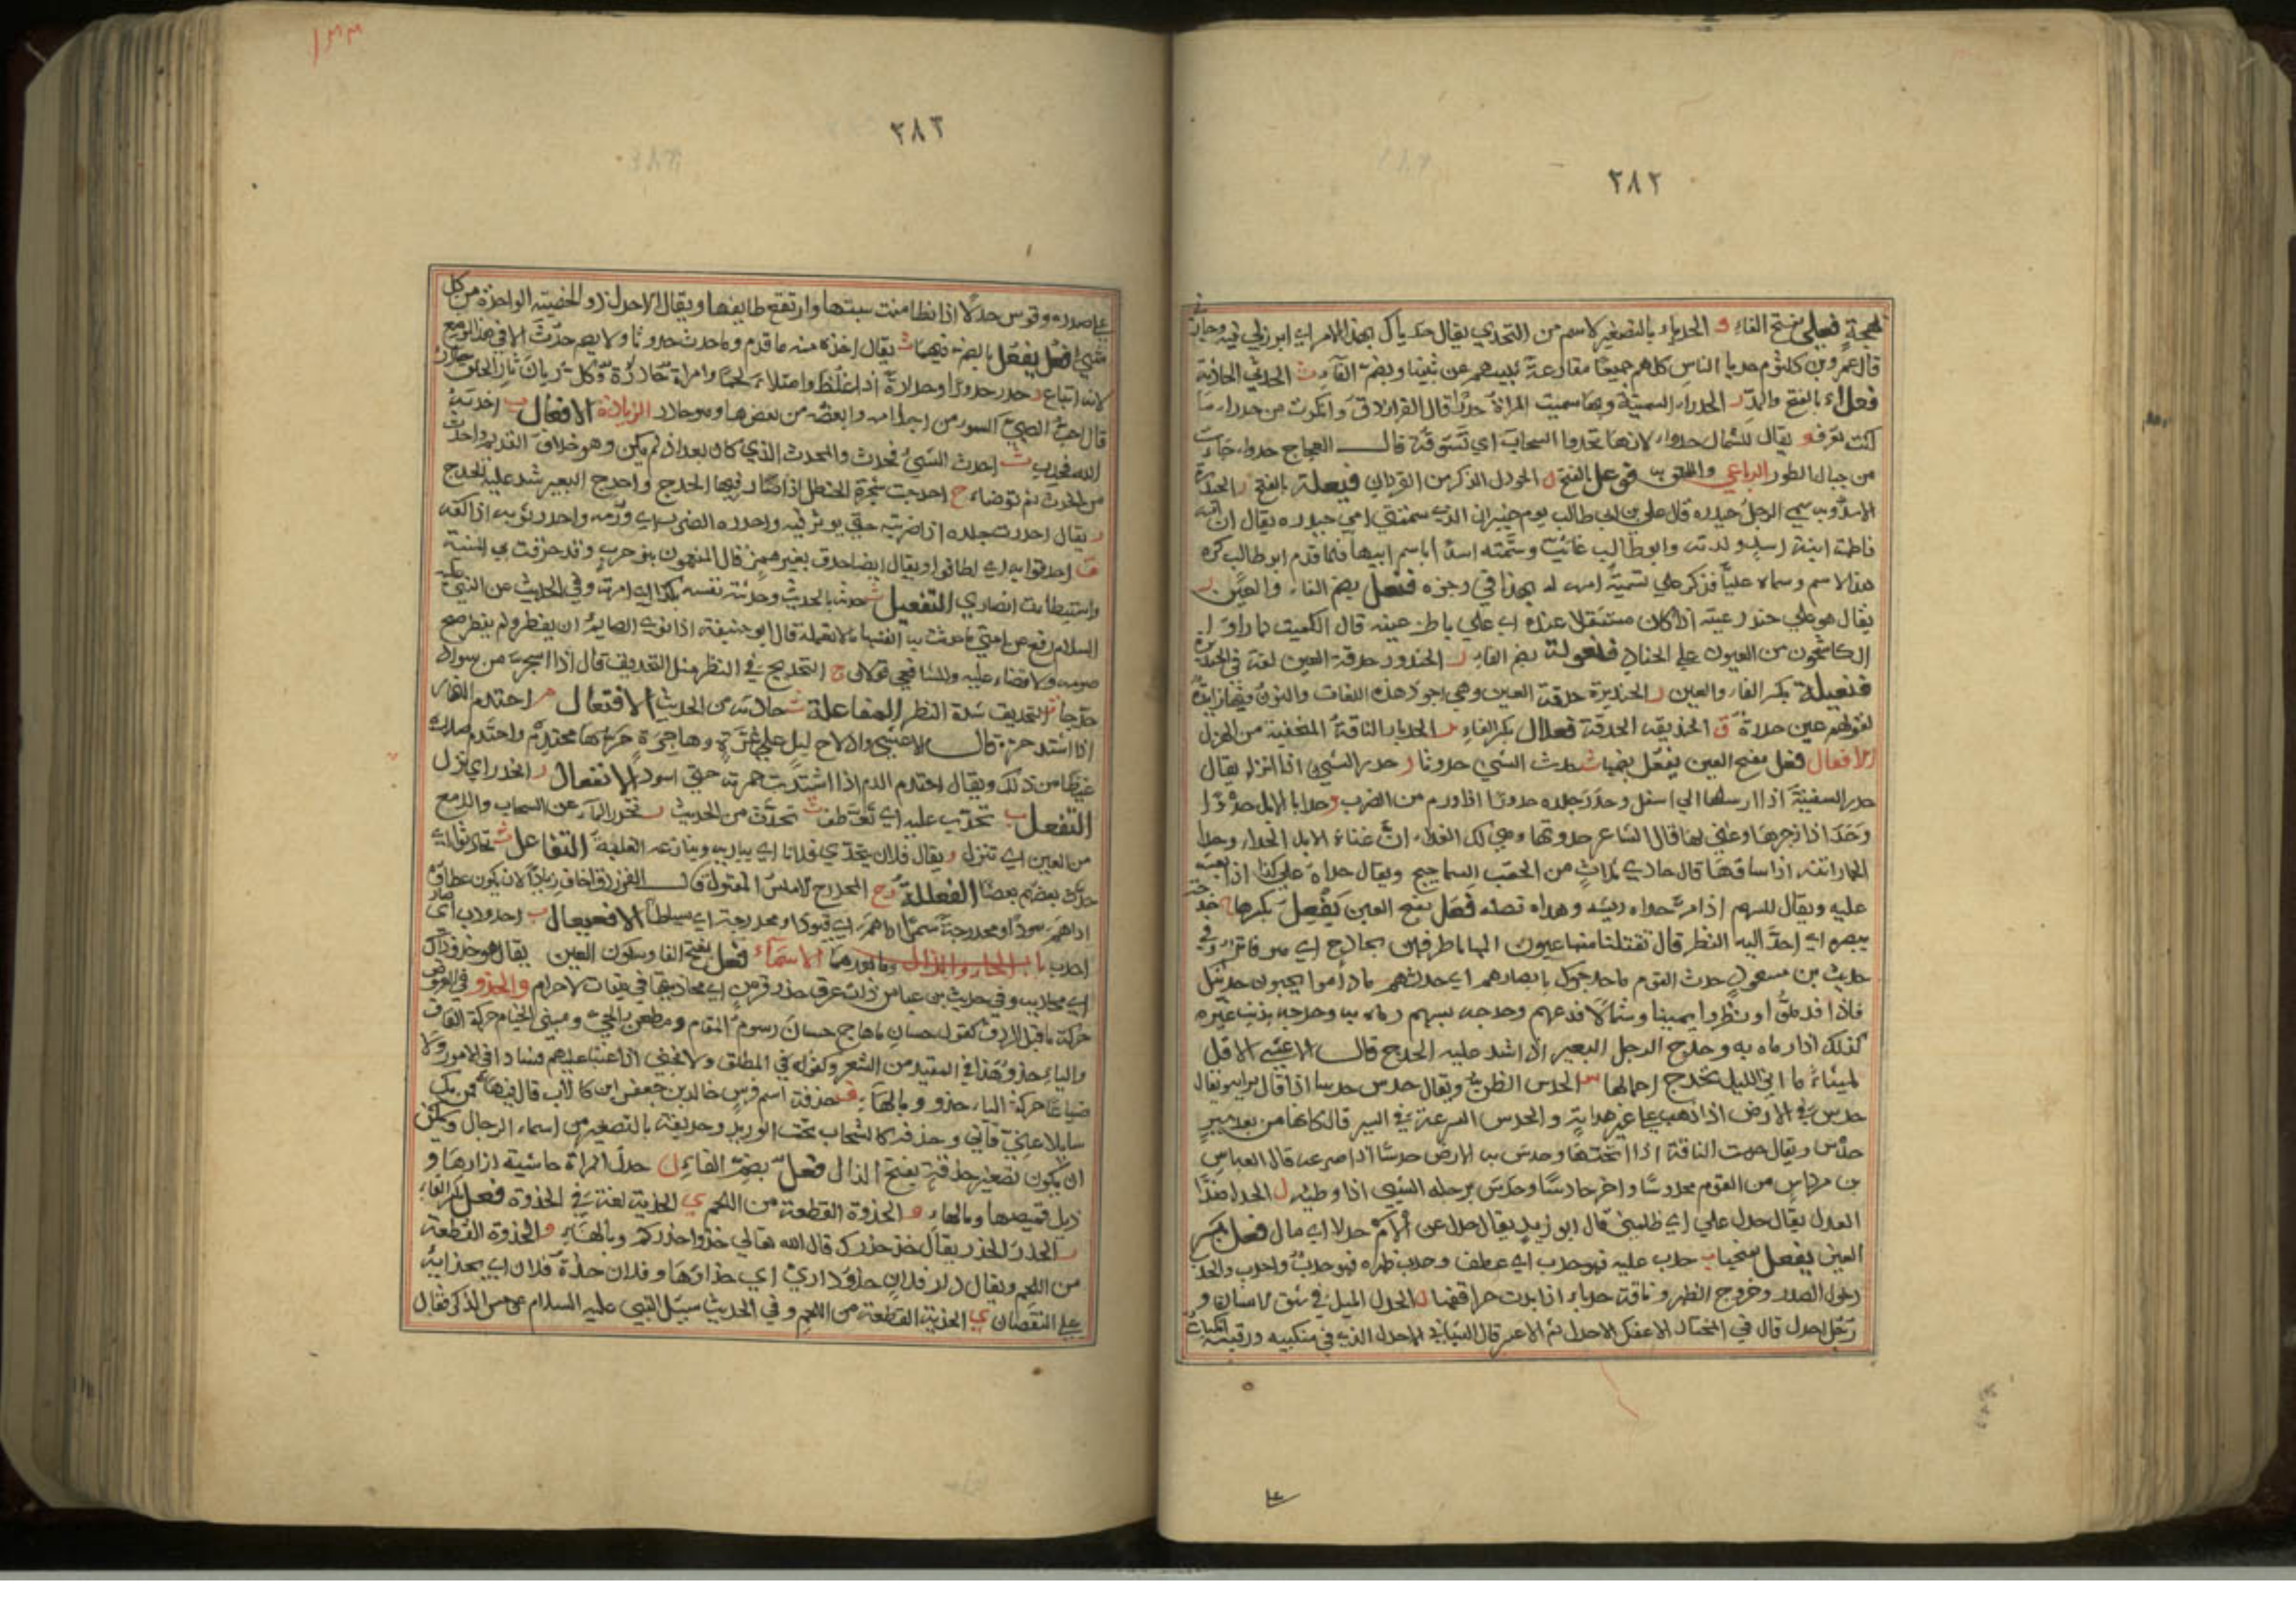 ٢٨٢
بمعجمة فُعَيلى بفتح الفاء و الحدياء بالتصغير لاسم من التحدي يقال حدياك بهذا الامر اي ابرز لي فيه وجاز
قال عمرو بن كلثوم حديا الناس كلهم جميعا مقارعة بنيهم عن بنينا وبضم الفاء ث الحديثى الحادثة
فعلاء بالفتح والمد ر الحدراء السمينة وبها سميت المراة حدراء قال الفرزدق وانكرت من حدراء ما
كنت تعرف و يقال للشمال حدواء لانها تحدوا السحاب اي تسوقه قال العجاج حدواء جاءت
من جبال الطور الرباعي والملحق به فوعل بالفتح ل الحودل الذكر من القردان فيعلة بالفتح ر الحيدرة
الاسد وبه سمي الرجل حيدره قال علي بن ابي طالب يوم خيبر انا الذي سمتني امي حيدره يقال ان امه
فاطمة ابنة اسد ولدته وابو طالب غائب وسمته اسدا باسم ابيها فلما قدم ابو طالب كره
هذا الاسم وسماه عليا فذكر علي تسمية امه له بهذا في رجزه فنعل بضم الفاء والعين ر
يقال هو على حندر عينه اذا كان مستثقلا عنده اي على باطن عينه قال الكميت
الكاشحون من العيون على الحنادر فنعولة بضم الفاء ر الحندورة حدقة العين لغة في الحنديرة
فنعيلة بكسر الفاء والعين ر الحنديرة حدقة العين وهي اجود هذه اللغات والنون فيها زايدة
لقولهم عين حدرة ق الحنديقة الحدقة فعلال بكسر الفاء الحدبار الناقة المنحنية من الهزل
الافعال فعل بفتح العين يفعل بضمها ث حدث الشيء حدوثا ر حدر الشيء اذا انزله يقال
حدر السفينة اذا ارسلها الى اسفل وحدر جلده حدورا اذا ورم من الضرب و حدا بالابل حدوا
وحدا اذا زجرها وغنى لها قال الشاعر حدوتها وهي لك الفداء ان غناء الابل الحداء وحدا
الحمار اتنه اذا ساقها قال حادي ثلاث من الحقب السماحيج ويقال حداه على كذا اذا بعثه
عليه ويقال للسهم اذا مر حداه ريشه وهداه نصله فعل بفتح العين يفعل بكسرها ج حدجه
ببصره اي احد اليه النظر قال تقتلنا منها عيون كانها
حديث بن مسعود حدث القوم ما حدجوك بابصارهم اي حدثهم ما داموا يحبون حديثك
فاذا او نظروا يمينا وشمالا فدعهم وحدجه بسهم رماه به وحدجه بذنب غيره
كذلك اذا رماه به وحدج الرجل البعير اذا شد عليه الحدج قال الاعشى الاقل
لميثاء ما بالليل تحدج احمالها س الحدس الظن ويقال حدس حدسا اذا قال برايه ويقال
حدس في الارض اذا ذهب على غير هداية والحدس السرعة في السير قال كانها من بعد سير
حدس ويقال حدست الناقة اذا انختها وحدس به الارض حدسا اذا صرعه قال العباس
بن مرداس من القوم محدوسا واخر حادسا وحدس برجله الشيء اذا وطئه ل الحدل ضد
العدل يقال حدل علي اي ظلمني قال ابو زيد يقال حدل عن الامر حدلا اي مال فعل بكسر
العين يفعل بفتحها ب حدب عليه فهو حدب اي عطف وحدب ظهره فهو حدب واحدب والحدب
دخول الصدر وخروج الظهر وناقة حدباء اذا بدت حراقفها ل الحدل الميل في شق الانسان و
رجل احدل قال في المختال الاعفك الاحدل ثم الاعسر قال الشيباني الاحدل الذي في منكبيه ورقبته انكباب
١٣٣
٢٨٣
على صدره وقوس حدلاء اذا تطامنت سيتها وارتفع طايفها ويقال الاحدل ذو الخصية الواحدة من كل
شيء فعل يفعل بالضم فيهما ث يقال اخذه منه ما قدم وما حدث حدوثا ولا يضم حدث الا في هذا الموضع
لانه اتباع ر حدر حدورا وحدارة اذا غلظ وامتلاء لحما وامراة حادرة وكل ريان تار الخلق حادر
قال احب الصبي السوء من اجل امه وابغضه من بغضها وهو حادر الزيادة الافعال ب احدبه
الله فحدب ث احدث الشيء فحدث والمحدث الذي كان بعد اذ لم يكن وهو خلاف القديم واحدث
من الحدث ثم توضاء ج احدجت شجرة الحنظل اذا صار فيها الحدج واحدج البعير شد عليه الحدج
ر يقال احدرت جلده اذا ضربته حتى يوثر فيه واحدره الضرب اي ورمه واحدر ثوبه اذا كفه
ق احدقوا به اي اطافوا ويقال ايضا حدق بغير همز قال المنهون بنو حرب وقد حدقت بي المنية
واستبطات انصاري التفعيل ث حدثه بالحديث وحدثته نفسه بكذا اي امرته وفي الحديث عن النبي عليه
السلام رفع عن امتي ما حدثت به انفسها ما لا تعمله قال ابو حنيفة اذا نوى الصايم ان يفطر ولم يفطر صح
صومه ولا قضاء عليه وللشافعي قولان ج التحديج في النظر مثل التحديق قال اذا اسبجرت من سواد
حدجا ق التحديق شدة النظر المفاعلة ث حادثه من الحديث الافتعال م احتدم النهار
اذا اشتد حره قال الاعشى وادلاج ليل على غرة وهاجرة حرها محتدم واحتدم صدره
غيظا من ذلك ويقال احتدم الدم اذا اشتدت حمرته حتى اسود الانفعال ر انحدر اي نزل
التفعل ب تحدب عليه اي تعطف ث تحدث من الحديث ر تحدر الماء عن السحاب والدمع
من العين اي تنزل و يقال فلان يتحدى فلانا اي يباريه وينازعه الغلبة التفاعل ث تحادثوا اي
حدث بعضهم بعضا الفعللة رج المحدرج الاملس المفتول قال الفرزدق اخاف زيادا ان يكون عطاؤه
اداهم سودا او محدرجة سمرا اداهم اي قيودا ومحدرجة اي سياطا الافعيعال ب احدودب اي صار
احدب باب الحاء والذال وما بعدهما الاسماء فعل بفتح الفا وسكون العين يقال هو حذو ذاك
اي محاذيه وفي حديث بن عباس ذات عرق حذو قرن اي محاذيتها في ميقات الاحرام و الحذو في العروض
حركة ما قبل الردف كقول حسان ما هاج حسان رسوم المقام ومظعن الحي ومبنى الخيام حركة القاف
والياء حذو هذا في المقيد من الشعر وكقوله في المطلق
ضياعا حركة الياء حذو و بالهاء ف حذفة اسم فرس خالد بن جعفر ابن كلاب قال فيها فمن يك
سايلا عني فاني وحذفة كالشجا تحت الوريد وحذيفة بالتصغير من اسماء الرجال ويمكن
ان يكون تصغير حذفة بفتح الذال فعل بضم الفاء ل حذل المراة حاشية ازارها و
ذيل قميصها وبالهاء و الحذوة القطعة من اللحم ي الحذية لغة في الحذوة فعل بكسر الفاء
ر الحذر الحذر يقال خذ حذرك قال الله تعالى خذوا حذركم وبالهاء و الحذوة القطعة
من اللحم ويقال دار فلان حذوة داري اي حذاؤها وفلان حذة فلان اي بحذايه
على النقصان ي الحذية القطعة من اللحم وفي الحديث سيل النبي عليه السلام عن مس الذكر فقال